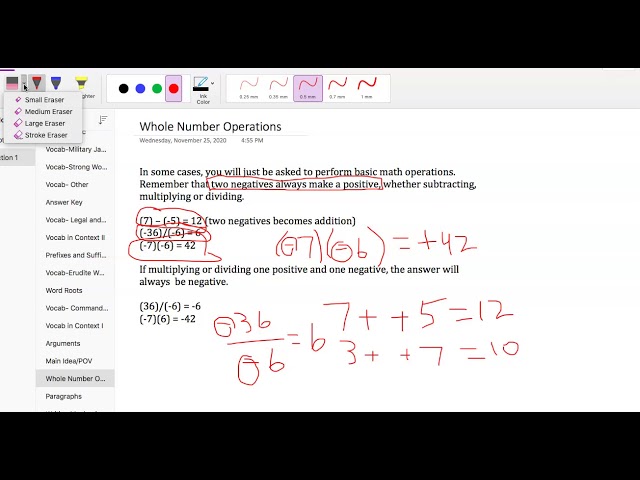 ghter
Ink
Color
0.25 mm
0.35 mm
0.5 mm
0.7 mm
1 mm
Small Eraser
Medium Eraser
Large Eraser
Stroke Eraser
ction 1
Vocab-Military Ja...
Vocab-Strong Wo...
Vocab- Other
Answer Key
Vocab- Legal and...
Vocab in Context II
Prefixes and Suffi...
Vocab-Erudite W...
Word Roots
Vocab- Command...
Vocab in Context I
Arguments
Main Idea/POV
Whole Number O...
Paragraphs
Whole Number Operations
Wednesday, November 25, 2020 4:55 PM
In some cases, you will just be asked to perform basic math operations.
Remember that two negatives always make a positive, whether subtracting,
multiplying or dividing.
(7) – (-5) = 12 (two negatives becomes addition)
(-36)/(-6) = 6
(-7)(-6) = 42
(-7)(-6) = +42
If multiplying or dividing one positive and one negative, the answer will
always be negative.
(36)/(-6) = -6
(-7)(6) = -42
-36
-6
= 6
7 + + 5 = 12
3 + + 7 = 10